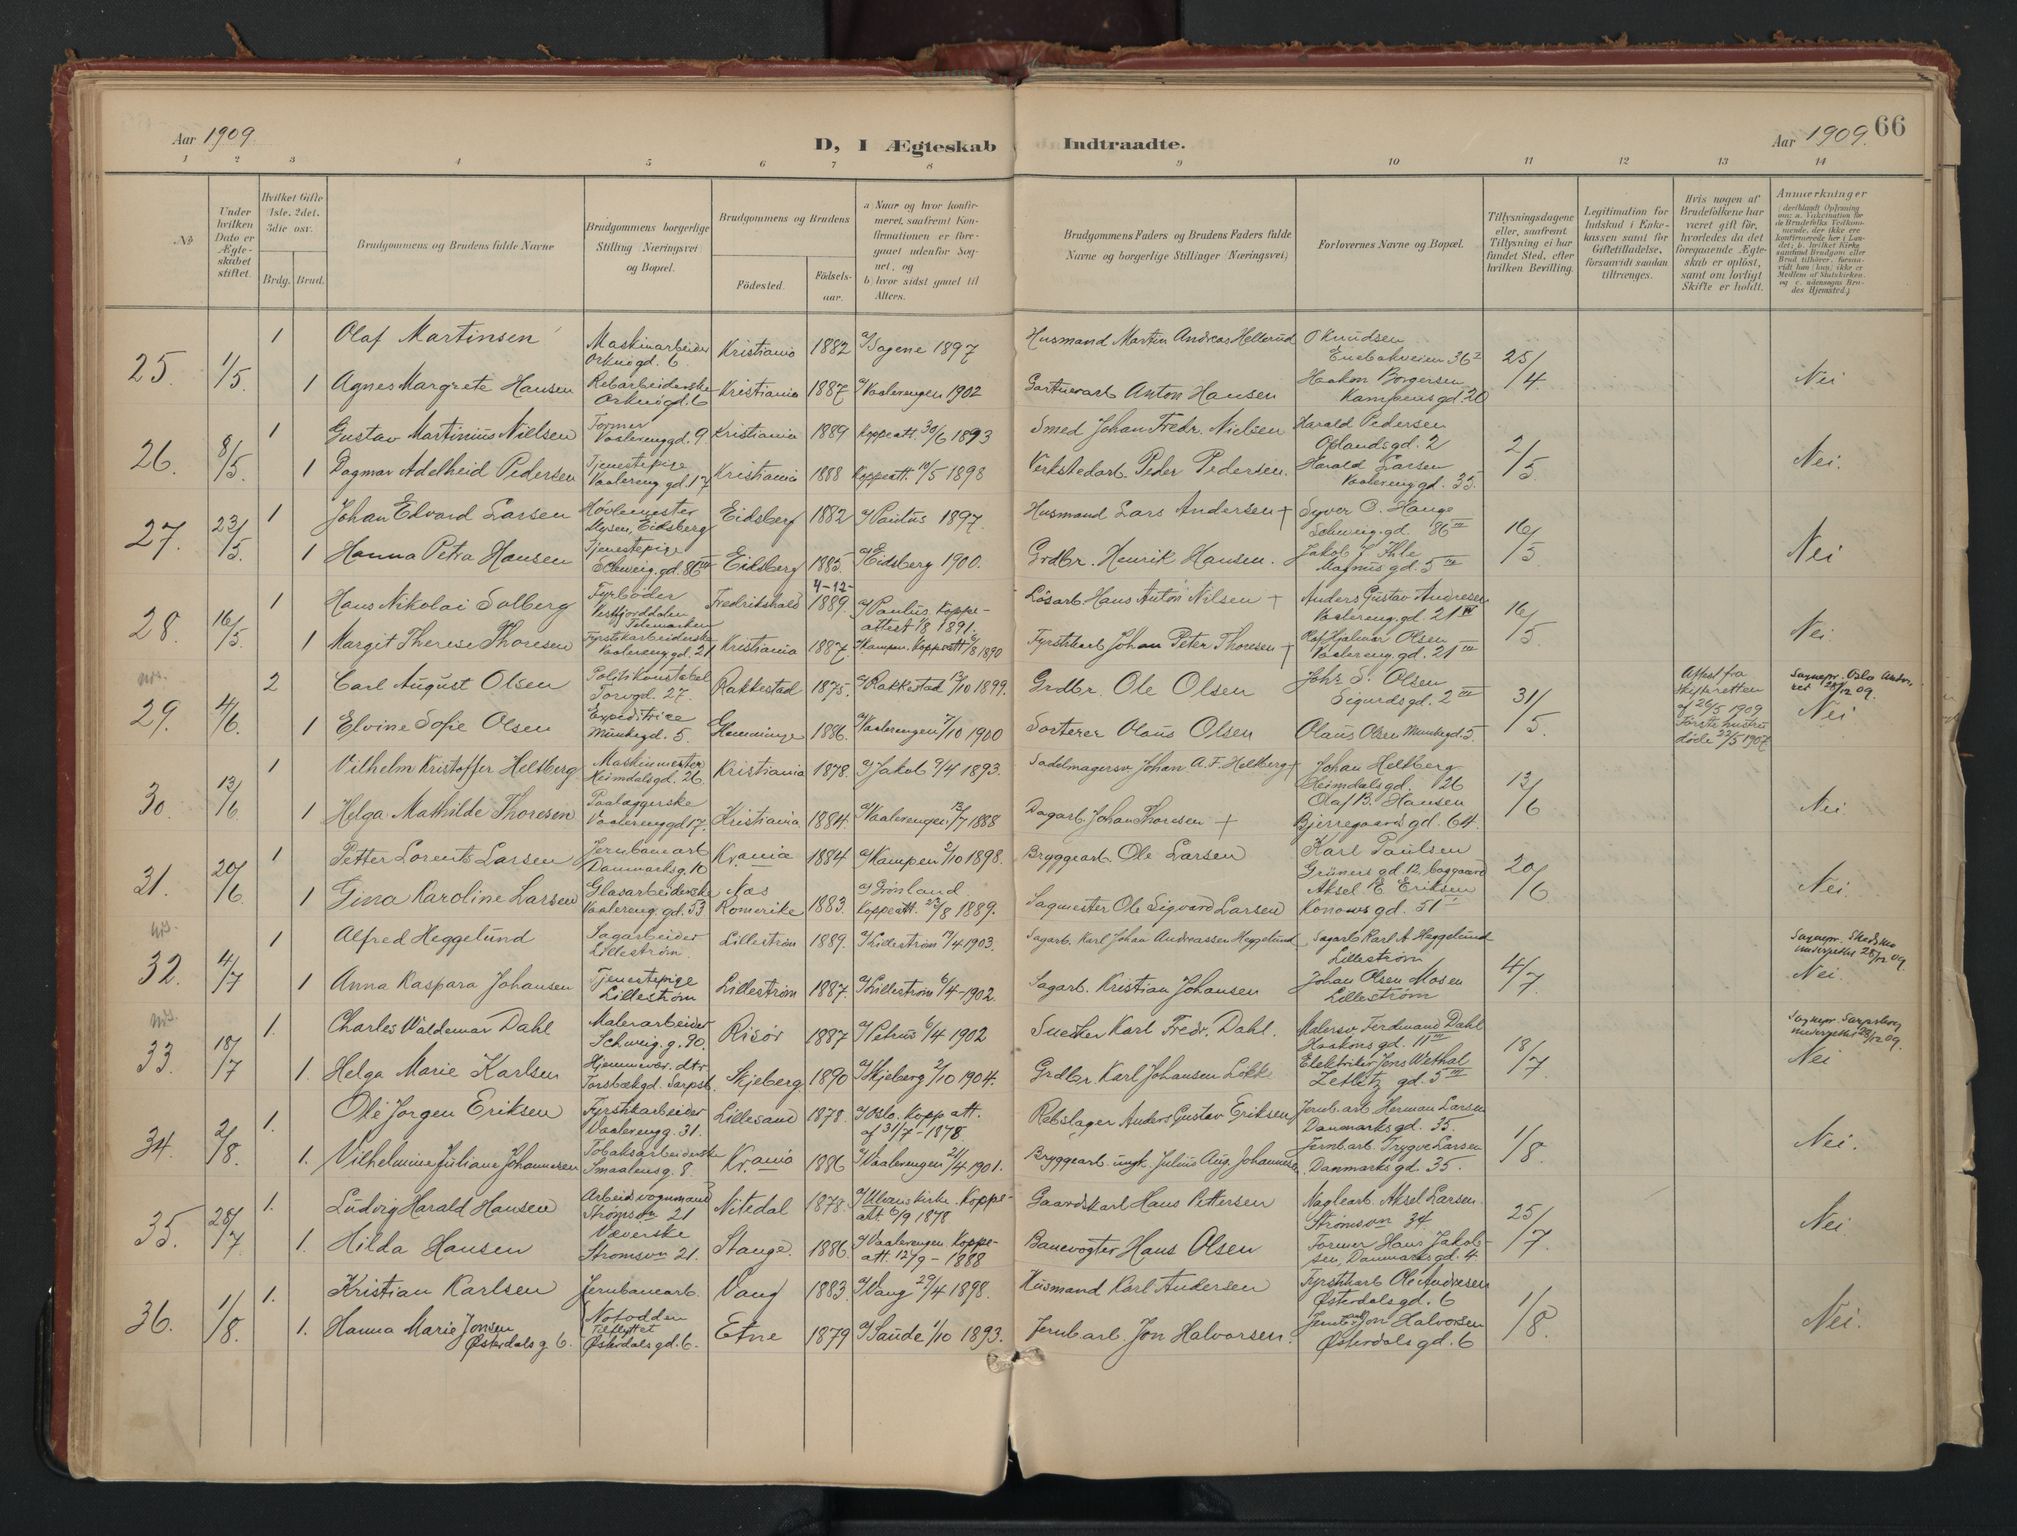 Aar 1909.
D, I Ægteskab Indtraadte.
Aar 1909. 66
1 2 3 4 5 6 7 8 9 10 11 12 13 14
No
Under hvilken Dato er Ægteskabet stiftet.
Hvilket Gifte 1ste, 2det, 3die osv.
Brdg. Brud.
Brudgommens og Brudens fulde Navne
Brudgommens borgerlige Stilling Næringsvei og Bopæl.
Brudgommens og Brudens
Fødested. Fødsels-aar.
a) Naar og hvor konfirmeret, saafremt Konfirmationen er foregaaet udenfor Sognet, og
b) hvor sidst gaaet til Alters.
Brudgommens Faders og Brudens Faders fulde Navne og borgerlige Stillinger (Næringsvei)
Forlovernes Navne og Bopæl.
Tillysningsdagene eller, saafremt Tillysning ei har fundet Sted, efter hvilken Bevilling.
Legitimation for Indskud i Enkekassen samt for Giftetilladelse, forsaavidt saadan tiltrænges.
Hvis nogen af Brudefolkene har været gift før, hvorledes da det foregaaende Ægteskab er opløst, samt om lovligt Skifte er holdt.
Anmærkninger
25. 1/5 1 Olaf Martinsen Maskinarbeider Orknøgd. 6 Kristiania 1882 a/ Sagene 1897 Husmand Martin Andreas Hellerud O Knudsen Enebakveien 36² 25/4
1 Agnes Margrete Hansen Rebarbeiderske Orknøgd. 6 Kristiania 1887 a/ Vaalerengen 1902 Gartnerarb Anton Hansen Haakon Borgersen Kampensgd. 20 Nei
26. 8/5 1 Gustav Martinius Nielsen Former Vaalerenggd. 9 Kristiania 1889 Koppeatt. 30/6 1893 Smed Johan Fredr. Nielsen Harald Pedersen Oplandsgd. 2 2/5
1 Dagmar Adelheid Pedersen Tjenestepige Vaalereng gd. 17 Kristiania 1888 Koppeatt. 10/5 1898 Verkstedarb. Peder Pedersen Harald Larsen Vaalereng gd. 35. Nei.
27. 23/5 1 Johan Edvard Larsen Høvlemester Mysen, Eidsberg Eidsberg 1882 a/ Paulus 1897. Husmand Lars Andersen + Syver C. Hauge Schweig.gd. 86 III 16/5
1 Hanna Petra Hansen Tjenestepige Schweig.gd. 86 III Eidsberg 1885. a/ Eidsberg 1900. Grdbr. Henrik Hansen. Jakob L Ihle Magnus gd. 5 III Nei
28. 16/5 1 Hans Nikolai Solberg Fyrbøder Vestfjorddalen Telemarken Fredrikshald 4-12-1889. a/ Paulus. Koppeattest 1/8 1891. Løsarb. Hans Anton Nilsen + Anders Gustav Andresen Vaalereng.gd. 21 IV 16/5
1 Margit Therese Thoresen Fyrstikarbeiderske Vaalereng gd. 21 Kristiania 1887. a/ Kampen. Koppeatt 6/8 1890 Fyrstikarb Johan Peter Thoresen + Olaf Hjalmar Olsen Vaalereng.gd. 21 III Nei.
29. 4/6 2 Carl August Olsen Politikonstabel Torvgd. 27 Rakkestad 1875. a/ Rakkestad 13/10 1899. Grdbr. Ole Olsen Johs S. Olsen Sigurdsgd. 2 III 31/5 Attest fra Skifteretten af 26/5 1909 Første hustru døde 22/5 1907
1 Elvine Sofie Olsen Expeditrice Munkegd. 5. Glemminge 1886. a/ Vaalerengen 7/10 1900 Sorterer Olaus Olsen Olaus Olsen Munkegd. 5. Nei
30. 13/6 1 Vilhelm Kristoffer Heltberg Maskinmester Heimdalsgd. 26 Kristiania 1878. a/ Jakob 9/4 1893. Sadelmagersv. Johan A. F. Heltberg + Johan Heltberg Heimdalsgd. 26 13/6
1 Helga Mathilde Thoresen Paalæggerske Vaalerenggd 17. Kristiania 1884. a/ Vaalerengen. 13/7 1888 Dagarb. Johan Thoresen + Olaf B. Hansen Bjerregaardsgd. 64. Nei
31. 20/6 1 Petter Lorents Larsen Jernbanearb Danmarksg. 10 Kr.ania 1884 a/ Kampen 2/10 1898. Bryggearb. Ole Larsen Karl Paulsen Grüners gd. 12, baggaard 20/6
1 Gina Karoline Larsen Glasarbeiderske Vaalereng. gd. 53 Næs Romerike 1883. a/ Grønland Koppeatt. 23/8 1889. Sagmester Ole Sigvard Larsen Aksel E. Eriksen Konowsgd. 51 I Nei
32. 4/7 1 Alfred Heggelund Sagarbeider Lillestrøm. Lillestrøm 1889. a/ Lillestrøm 19/4 1903. Sagarb. Karl Johan Andreassen Heggelund Sagarb Karl A Heggelund Lillestrøm 4/7 Sognepr. Skedsmo underrettet 28/12 09.
1 Anna Kaspara Johansen Tjenestepige Lillestrøm Lillestrøm 1887. a/ Lillestrøm 6/4-1902. Sagarb. Kristian Johansen Johan Olsen Mosen Lillestrøm Nei.
33. 18/7 1. Charles Waldemar Dahl Malerarbeider Schweig. g. 90. Risør 1887 a/ Petrus 6/4 1902 Snedker Karl Fredr. Dahl. Malersv Ferdinand Dahl Haakonsgd. 11 III 18/7 Sognepr. Sarpsborg underrettet 28/12 09.
1. Helga Marie Karlsen Hjemmevær. dtr Torsbækgd. Sarpsb. Skjeberg 1890 a/ Skjeberg 2/10 1904. Grdbr. Karl Johansen Løkke Elektriker Jens Wethal Zetlitz gd. 5 III Nei
34. 2/8 1. Ole Jørgen Eriksen Fyrstikarbeider Vaalereng g. 31. Lillesand 1878. a/ Oslo. Kopp att. af 31/7-1878. Rebslager Anders Gustav Eriksen Jernb.arb Herman Larsen Danmarksgd. 35. 1/8
1. Vilhelmine Juliane Johannesen Tobaksarbeiderske Smaalensg. 8. Kr.ania 1886 a/ Vaalerengen 21/4 1901. Bryggearb. ungk. Julius Aug. Johannesen Jernb arb. Trygve Larsen Danmarks gd. 35. Nei.
35. 25/7 1. Ludvig Harald Hansen Arbeidsvognmand Strømsvn 21 Nitedal 1878. a/ Ulvens kirke. Koppeatt. 6/9 1878 Gaardskarl Hans Pettersen Naglearb. Aksel Larsen. Strømsvn 34. 25/7
1. Hilda Hansen Væverske Strømsvn 21. Stange. 1886. a/ Vaalerengen. Koppeatt. 12/9-1888 Banevogter Hans Olsen Former Hans Jakobsen, Danmarksgd. 4. Nei
36. 1/8 1. Kristian Karlsen Jernbanearb. Notodden Vang 1883 a/ Vang 29/4 1898. Husmand Karl Andersen Fyrstikarb Ole Andresen Østerdalsgd. 6 1/8
1. Hanna Marie Jonsen Østerdals g 6. Tilflyttet Østerdals gd. 6. Etne 1879 a/ Saude 1/10 1893. Jernb arb. Jon Halvorsen. Jernb arb Jon Halvorsen Østerdals gd. 6 Nei.